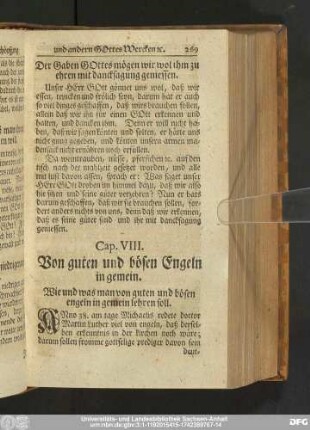 und andern GOttes Wercken ꝛc. 269
Der Gaben GOttes mögen wir wol ihm zu
ehren mit dancksagung geniessen.
Unser HErr GOtt gönnet uns wol, daß wir
essen, trincken und frölich seyn, darum hat er auch
so viel dinges geschaffen, daß wirs brauchen sollen,
allein daß wir ihn für einen GOtt erkennen und
halten, und dancken ihm. Denn er will nicht ha-
ben, daß wir sagen könten und solten, er hätte uns
nicht gnug gegeben, und könten unsern armen ma-
densack nicht ernähren noch erfüllen.
Da weintrauben, nüsse, pfersichen ꝛc. auf den
tisch nach der mahlzeit gesetzet worden, und alle
mit lust davon assen, sprach er: Was saget unser
HErr GOtt droben im himmel dazu, daß wir also
hie sitzen und seine güter verzehren? Nun er hats
darum geschaffen, daß wir sie brauchen sollen, for-
dert anders nichts von uns, denn daß wir erkennen,
daß es seine güter sind und ihr mit dancksagung
geniessen.
Cap. VIII.
Von guten und bösen Engeln
in gemein.
Wie und was man von guten und bösen
engeln in gemein lehren soll.
ANno 38. am tage Michaelis redete doctor
Martin Luther viel von engeln, daß dersel-
ben erkenntnis in der kirchen noth wäre;
darum sollen fromme gottselige prediger davon sein
Universitäts- und Landesbibliothek Sachsen-Anhalt
urn:nbn:de:gbv:3:1-1192015415-1742388767-14
DFG